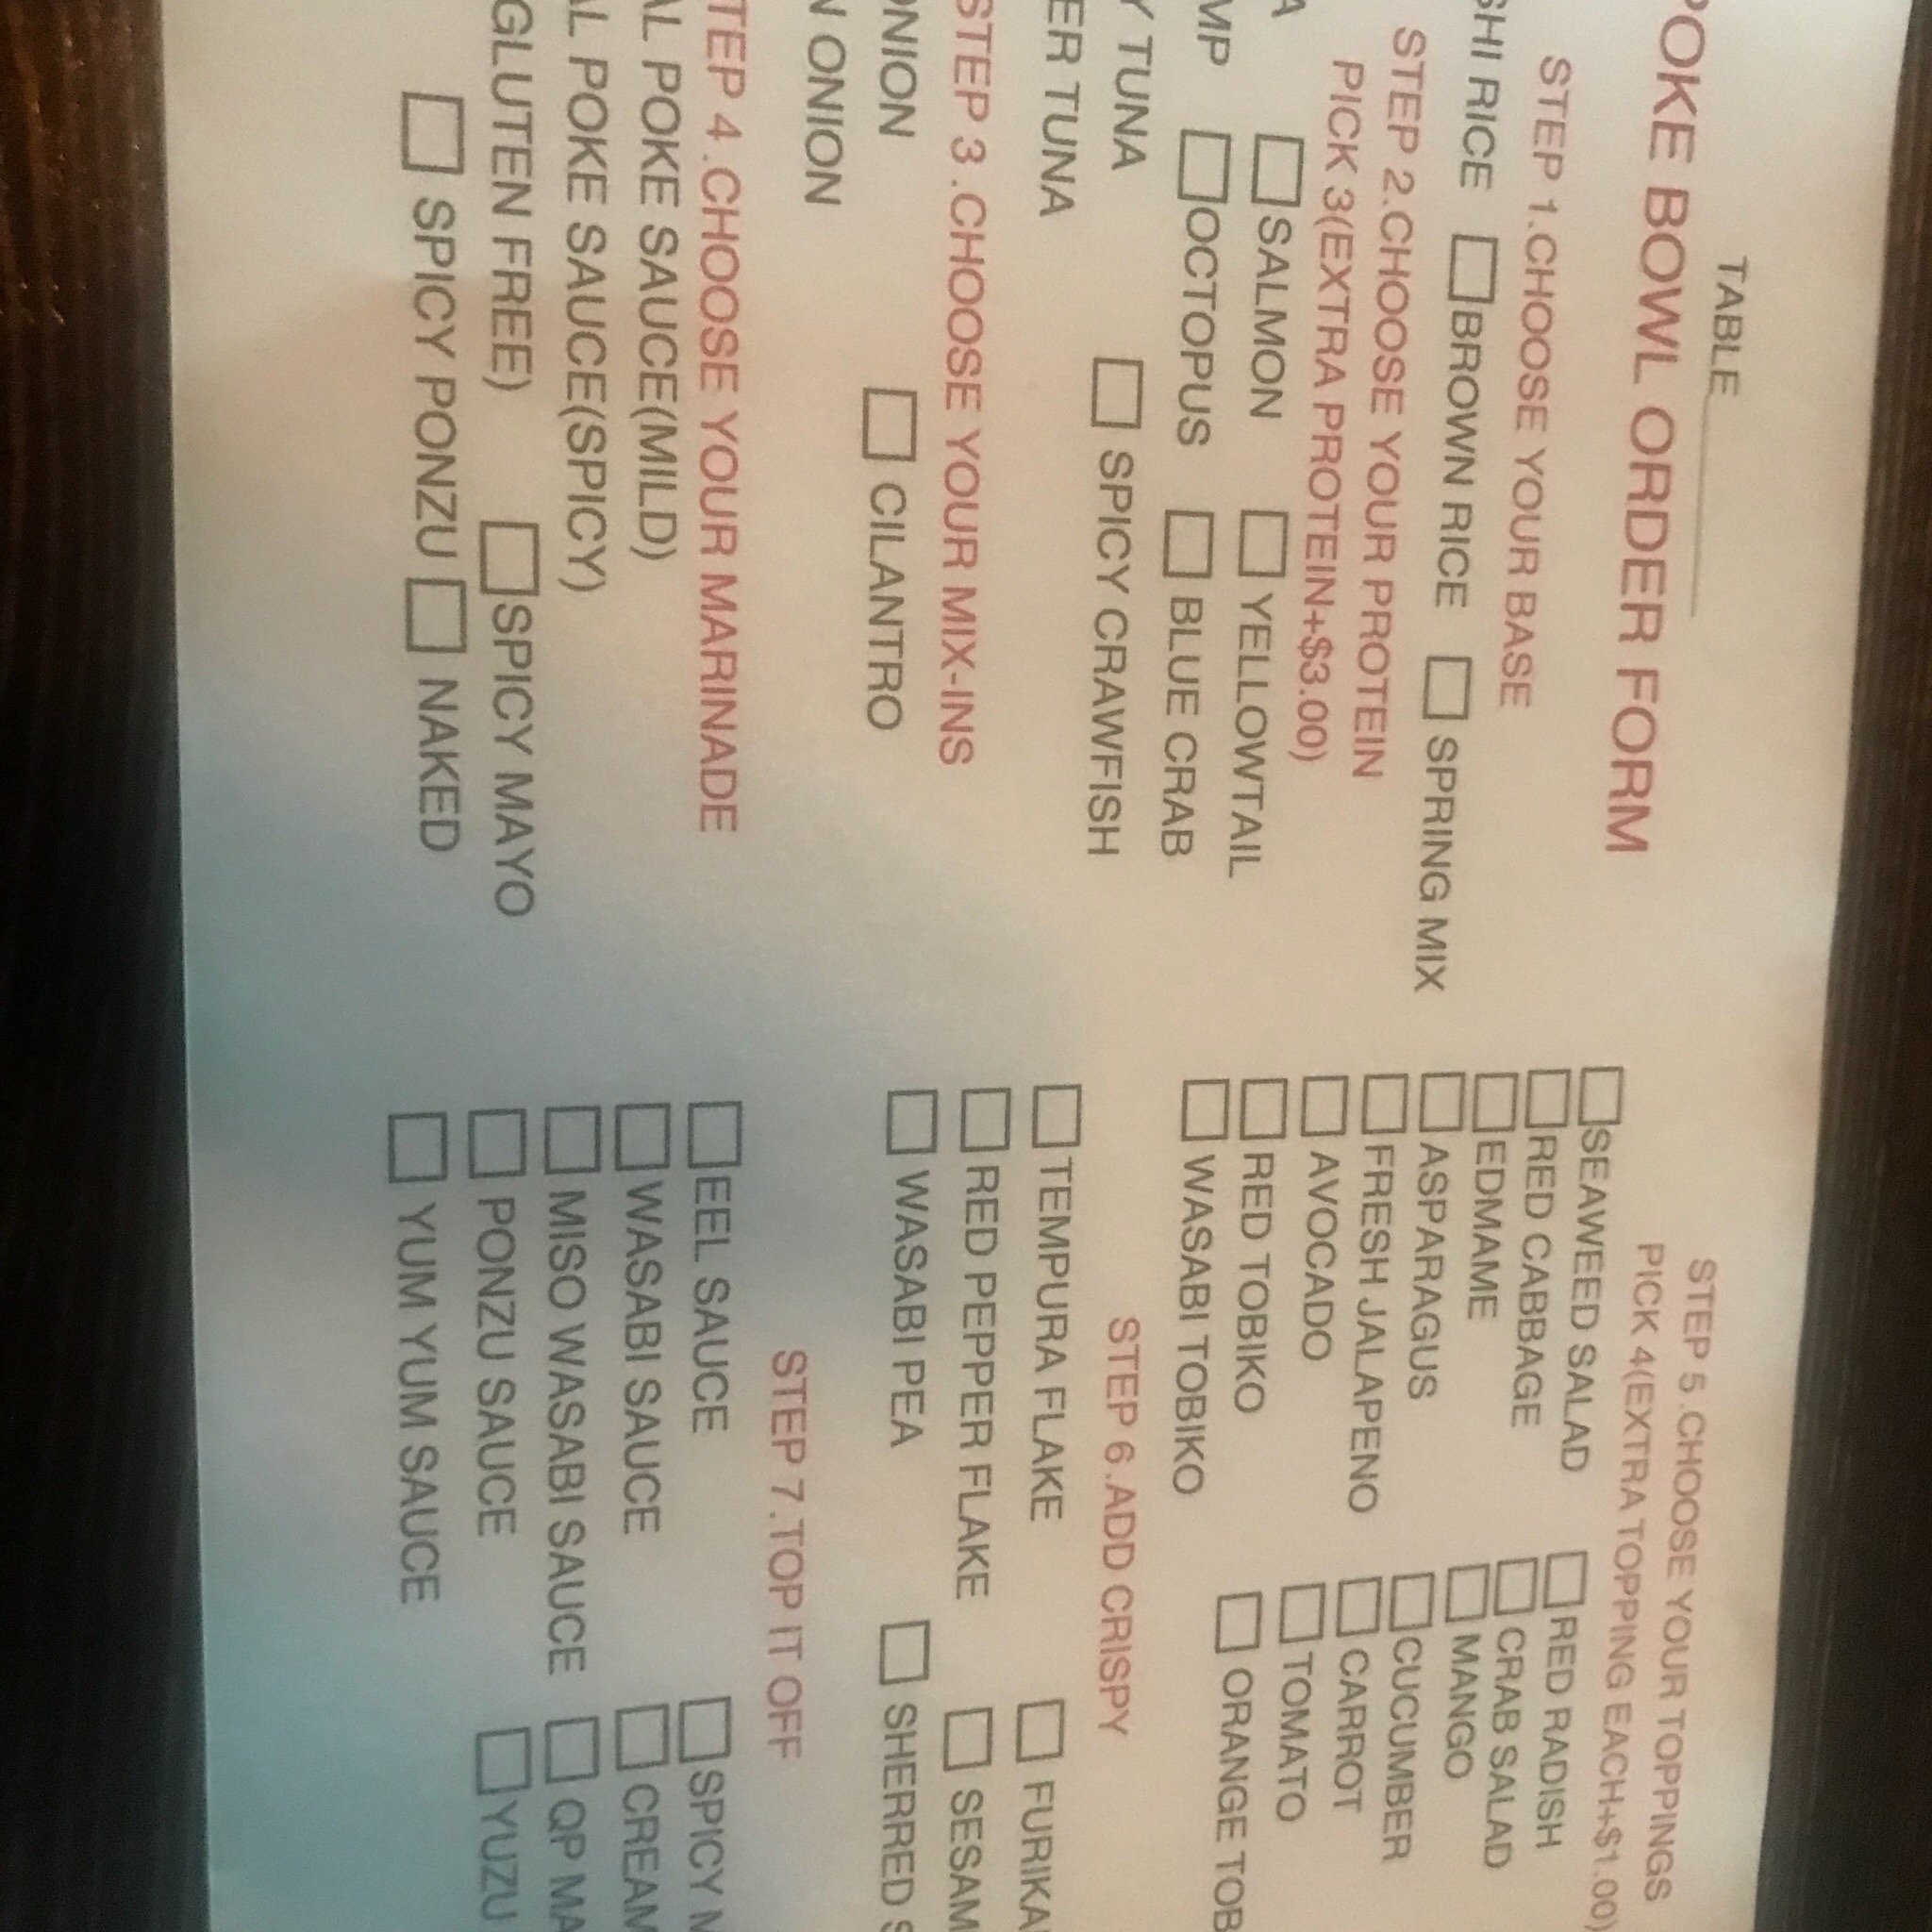 TABLE
POKE BOWL ORDER FORM
STEP 1.CHOOSE YOUR BASE
SHI RICE BROWN RICE SPRING MIX
STEP 2.CHOOSE YOUR PROTEIN
PICK 3(EXTRA PROTEIN+$3.00)
A SALMON YELLOWTAIL
MP OCTOPUS BLUE CRAB
Y TUNA SPICY CRAWFISH
ER TUNA
STEP 3 .CHOOSE YOUR MIX-INS
ONION CILANTRO
N ONION
TEP 4 .CHOOSE YOUR MARINADE
AL POKE SAUCE(MILD)
AL POKE SAUCE(SPICY)
GLUTEN FREE) SPICY MAYO
SPICY PONZU NAKED
STEP 5 .CHOOSE YOUR TOPPINGS
PICK 4(EXTRA TOPPING EACH+$1.00)
SEAWEED SALAD RED RADISH
RED CABBAGE CRAB SALAD
EDMAME MANGO
ASPARAGUS CUCUMBER
FRESH JALAPENO CARROT
AVOCADO TOMATO
RED TOBIKO ORANGE TOB
WASABI TOBIKO
STEP 6 .ADD CRISPY
TEMPURA FLAKE FURIKA
RED PEPPER FLAKE SESAM
WASABI PEA SHERRED S
STEP 7 .TOP IT OFF
EEL SAUCE SPICY M
WASABI SAUCE CREAM
MISO WASABI SAUCE QP MA
PONZU SAUCE YUZU
YUM YUM SAUCE